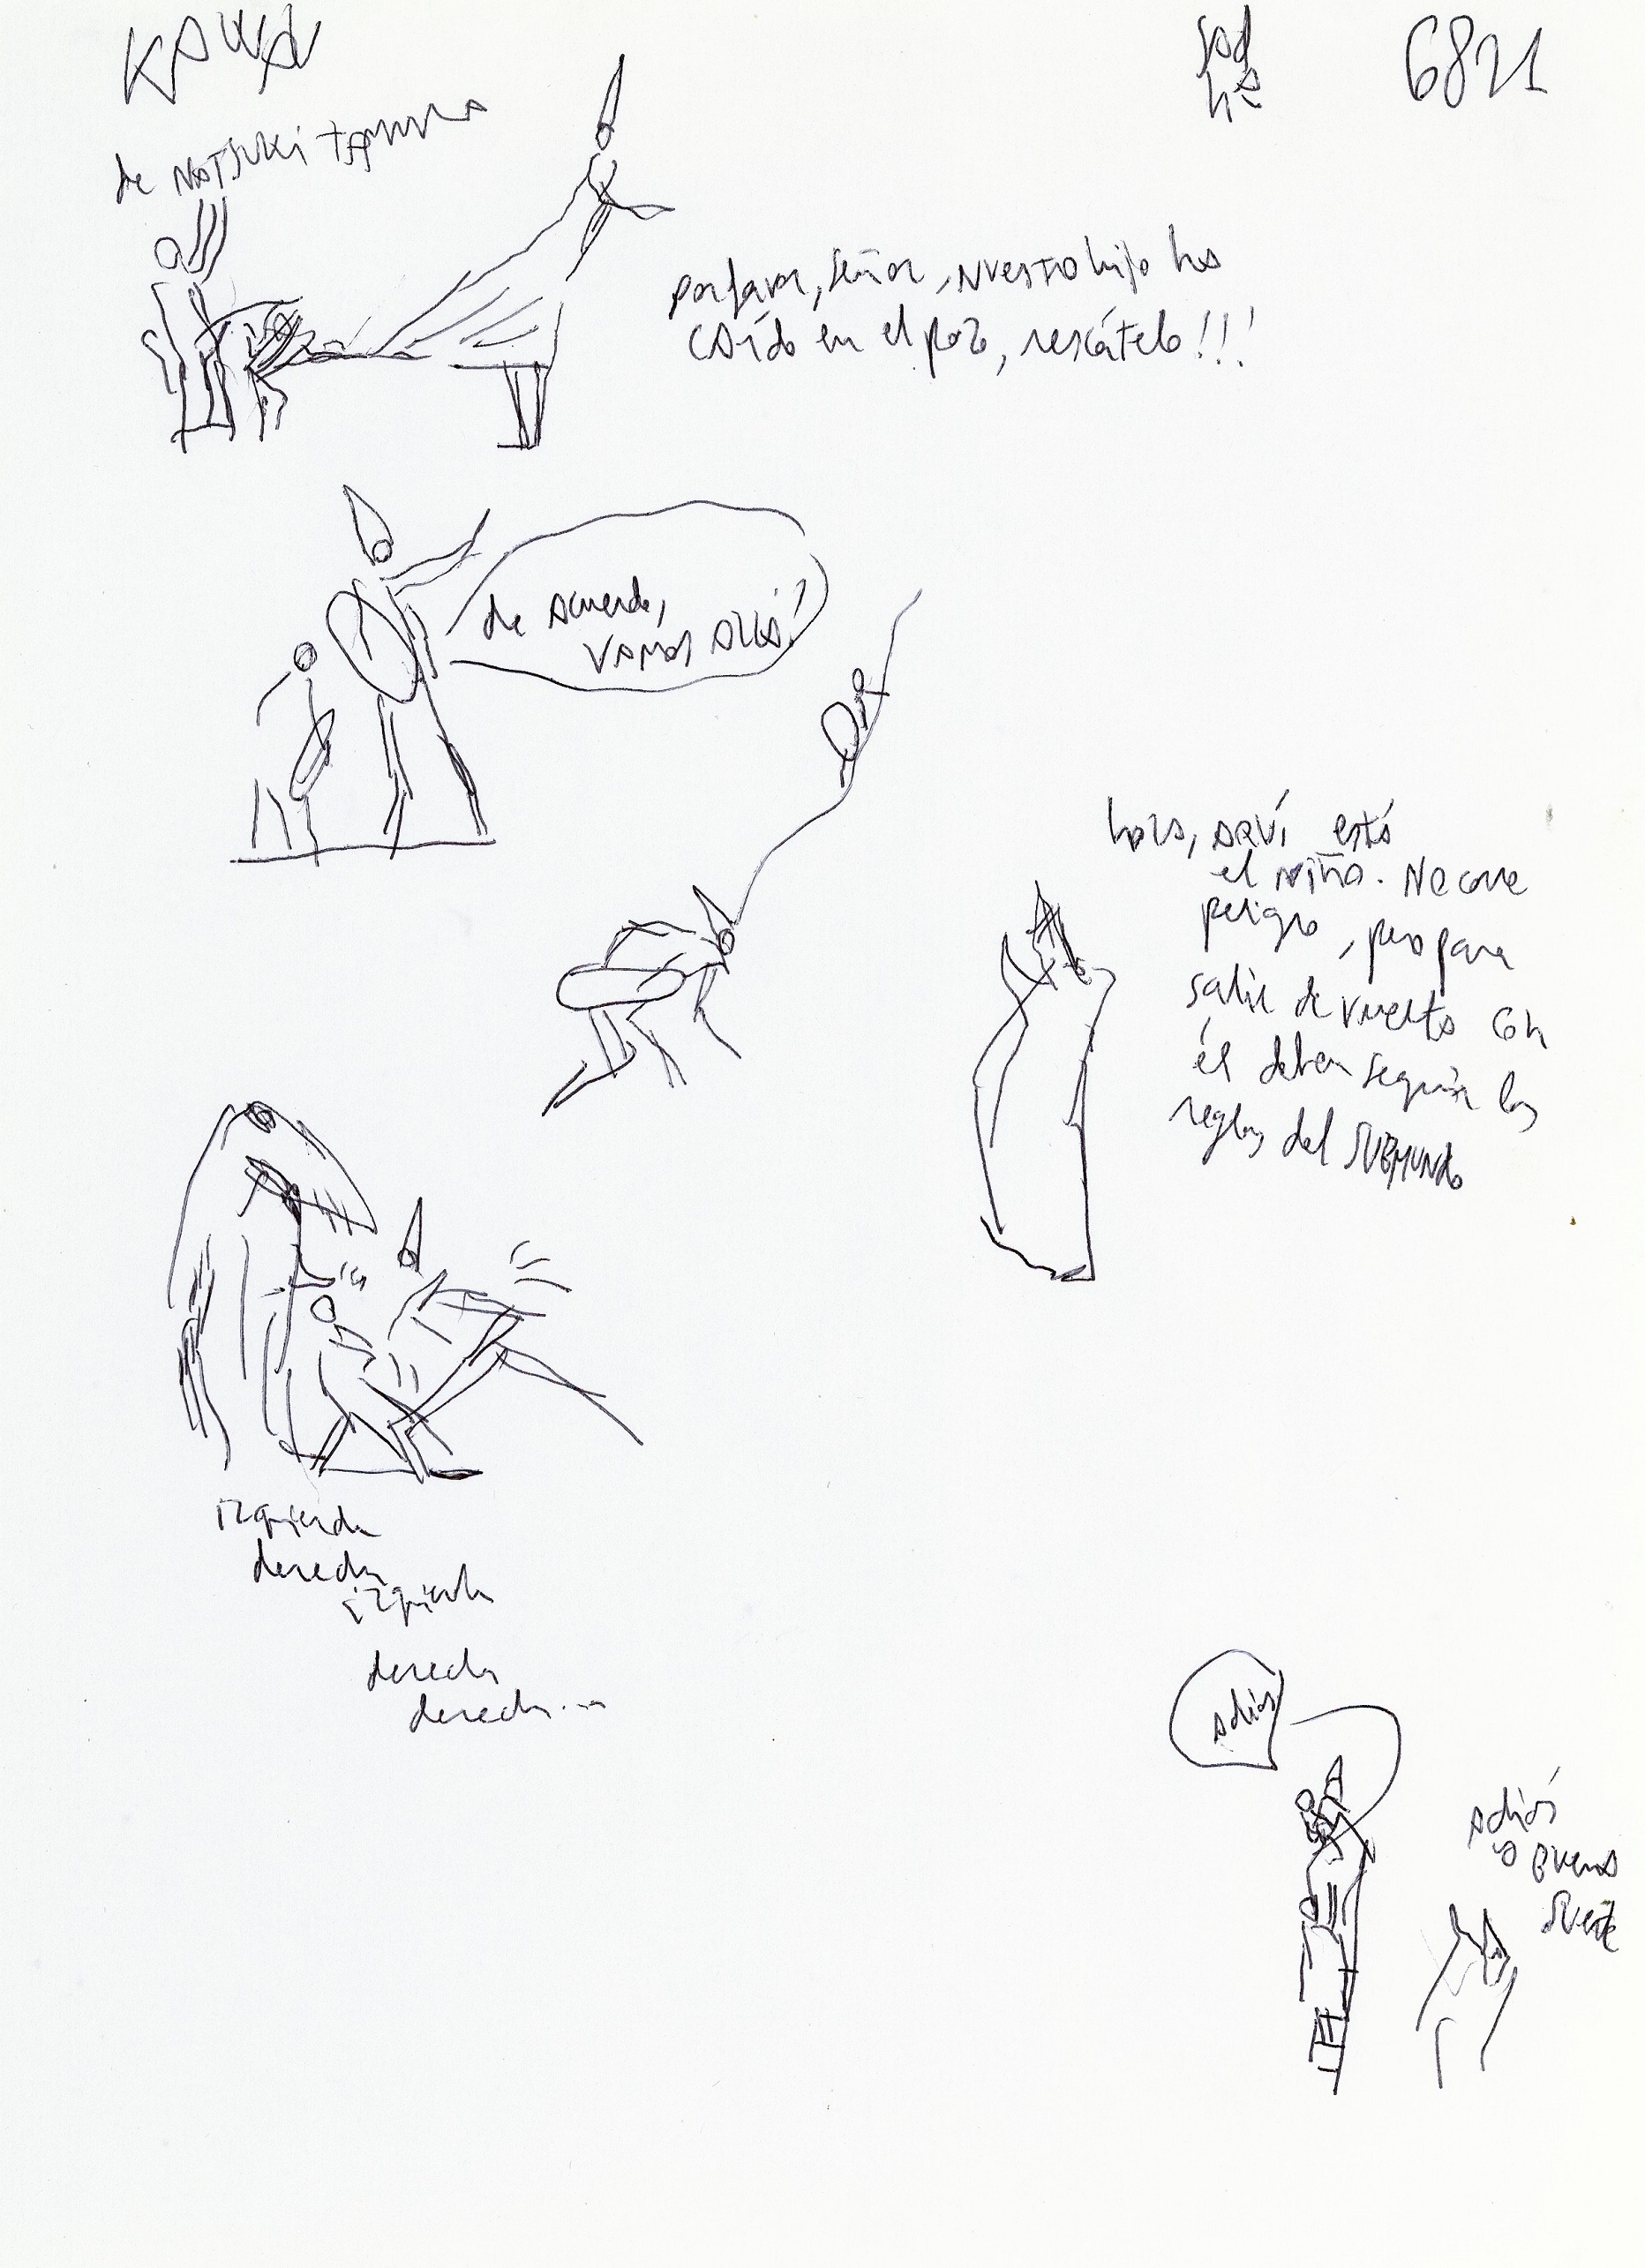 KAWA
de NATSUKI TAMURA
6821
porfavor, señor, nuestro hijo ha
CAído en el pozo, rescátelo!!!
de acuerdo,
VAMOS ALLÁ!
hola, AQUÍ está
el niño. No corre
peligro, pero para
salir de vuelta con
él deben seguir las
reglas del SUBMUNDO
izquierda
derecha
izquierda
derecha
derecha...
adiós
adiós
y BUENA
SUERTE